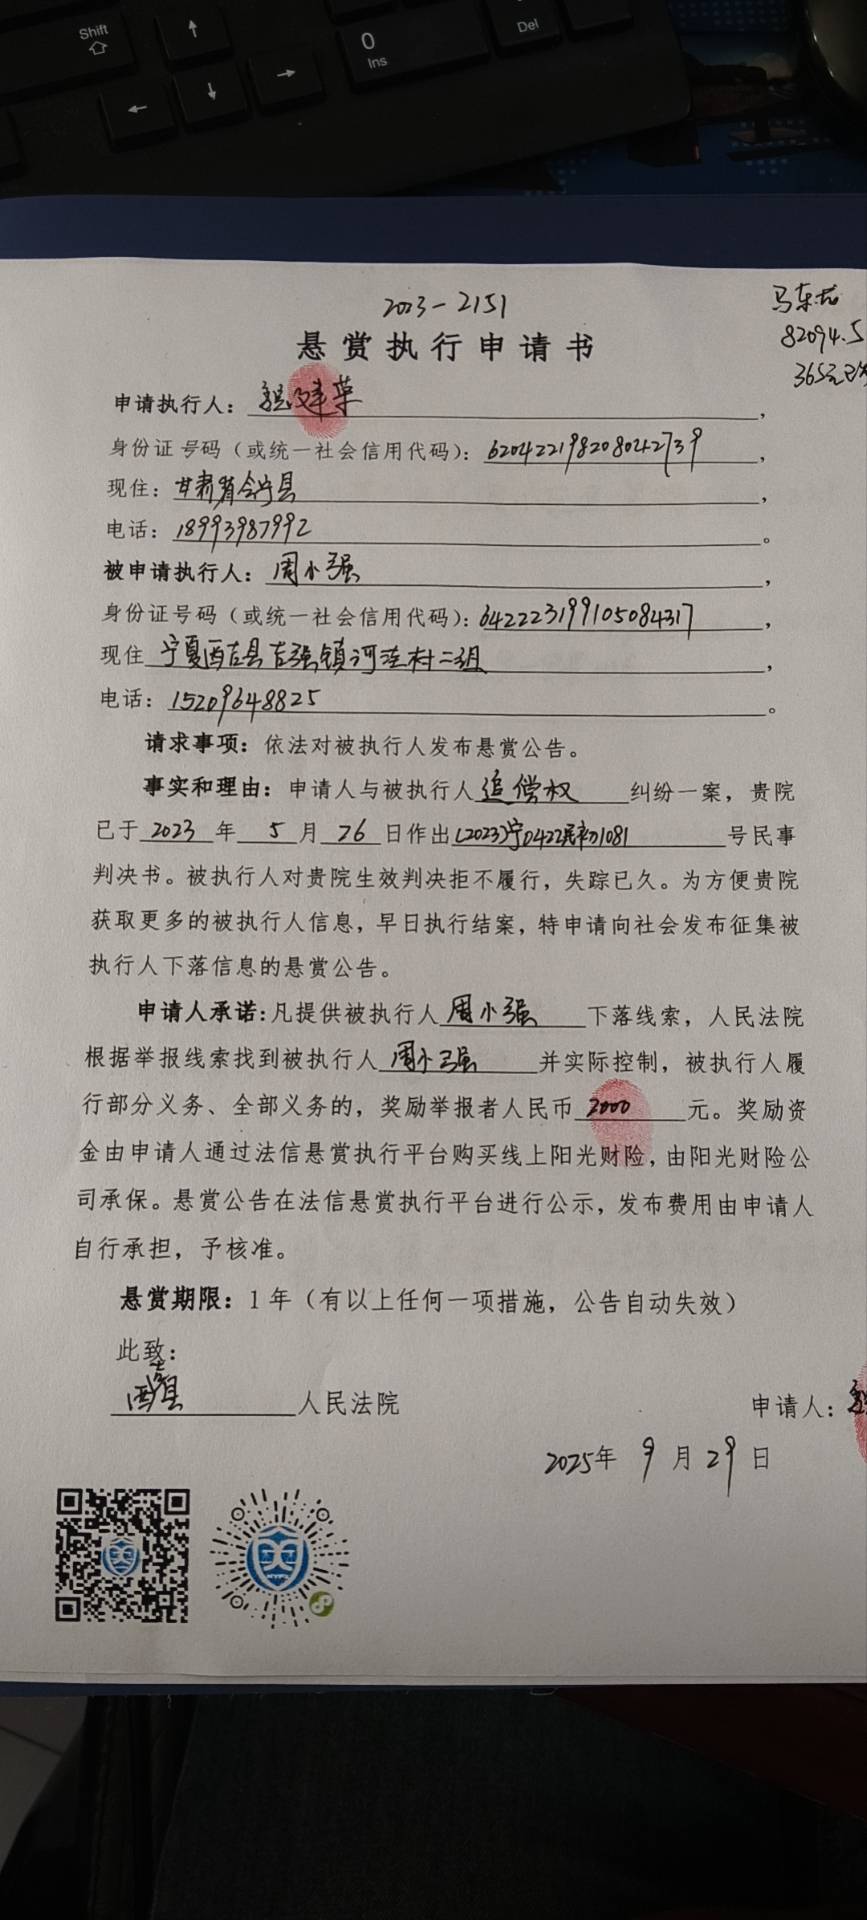 Shift
0
Ins
Del
2023-2151
马东
82094.5
365元已
悬赏执行申请书
申请执行人：魏建荣，
身份证号码（或统一社会信用代码）：620422198208042739，
现住：甘肃省会宁县，
电话：18993987992。
被申请执行人：周小强，
身份证号码（或统一社会信用代码）：642223199105084317，
现住宁夏西吉县吉强镇河洼村二组，
电话：15209648825。
请求事项：依法对被执行人发布悬赏公告。
事实和理由：申请人与被执行人追偿权纠纷一案，贵院
已于2023年5月26日作出(2023)宁0422民初1081号民事
判决书。被执行人对贵院生效判决拒不履行，失踪已久。为方便贵院
获取更多的被执行人信息，早日执行结案，特申请向社会发布征集被
执行人下落信息的悬赏公告。
申请人承诺：凡提供被执行人周小强下落线索，人民法院
根据举报线索找到被执行人周小强并实际控制，被执行人履
行部分义务、全部义务的，奖励举报者人民币2000元。奖励资
金由申请人通过法信悬赏执行平台购买线上阳光财险，由阳光财险公
司承保。悬赏公告在法信悬赏执行平台进行公示，发布费用由申请人
自行承担，予核准。
悬赏期限：1年（有以上任何一项措施，公告自动失效）
此致：
西吉县人民法院
申请人：
2025年9月29日